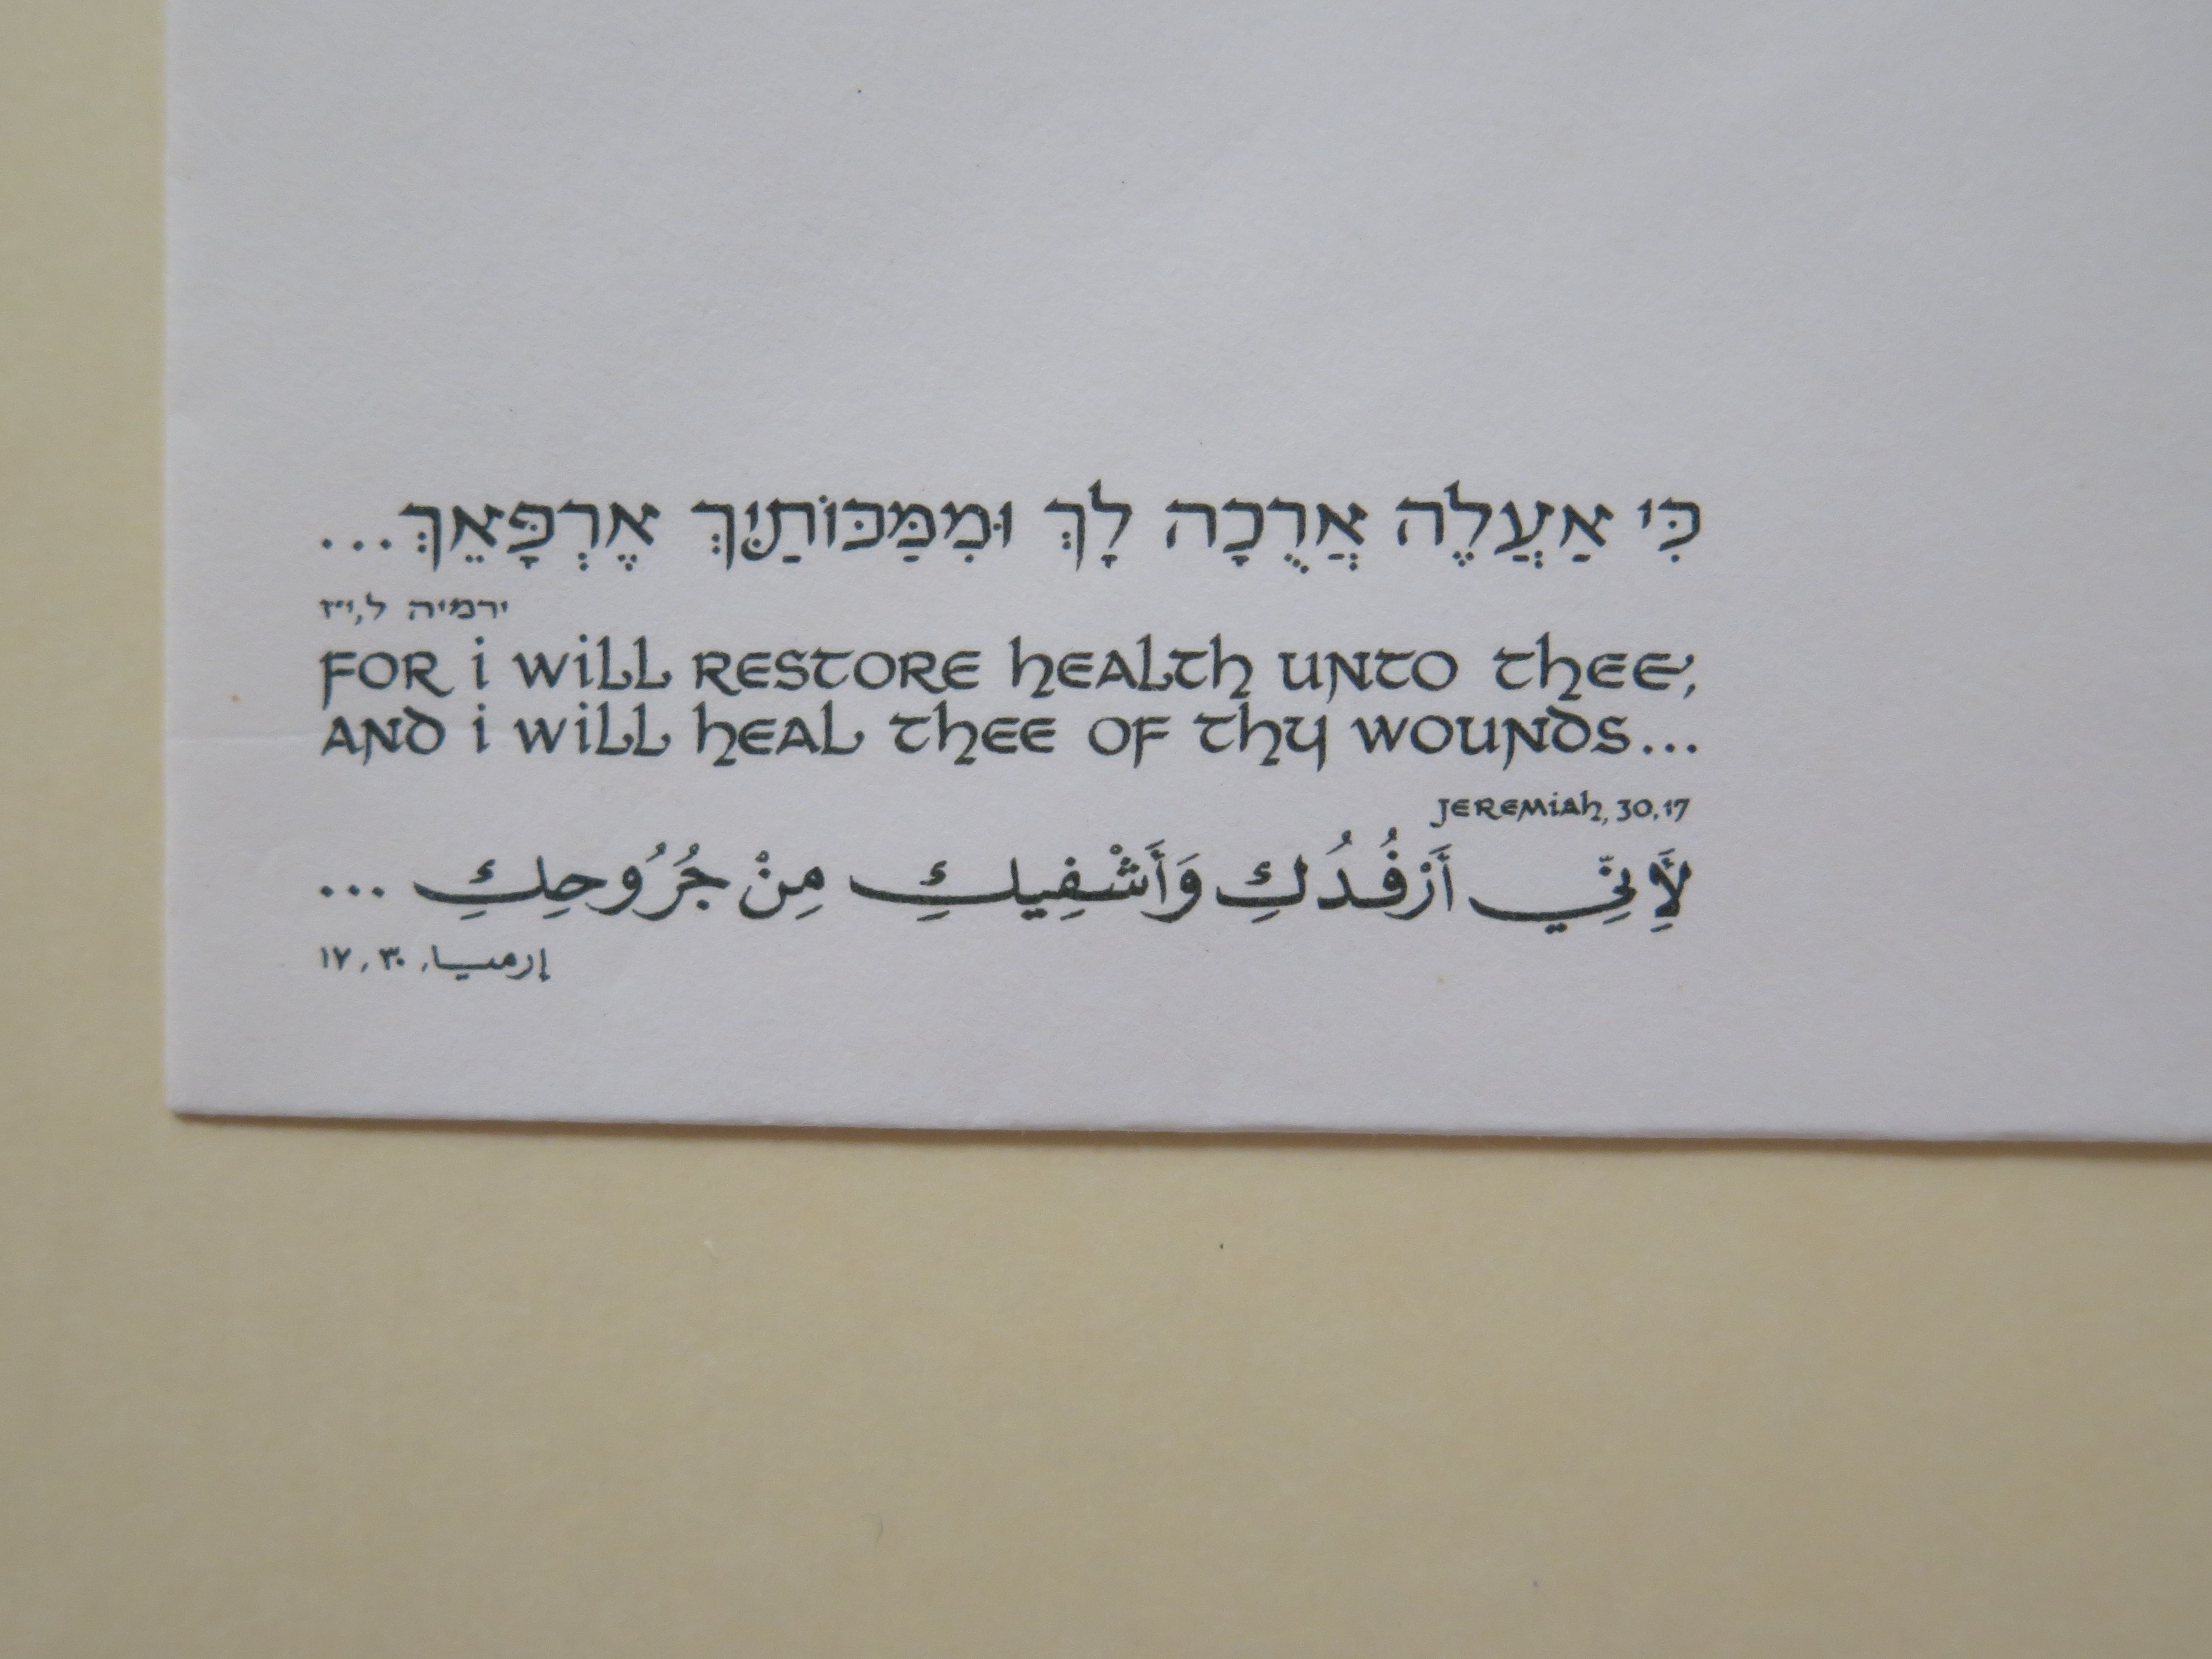 כִּי אַעֲלֶה אֲרֻכָה לָךְ וּמִמַּכּוֹתַיִךְ אֶרְפָּאֵךְ...
ירמיה ל,י״ז
FOR i WiLL RESTORE hEALTh UNTO ThEE,
AND i WiLL hEAL ThEE OF Thy WOUNDS...
JEREMiAh, 30,17
لِأَنِّي أَرْفُدُكِ وَأَشْفِيكِ مِنْ جُرُوحِكِ ...
إرميا، ٣٠، ١٧